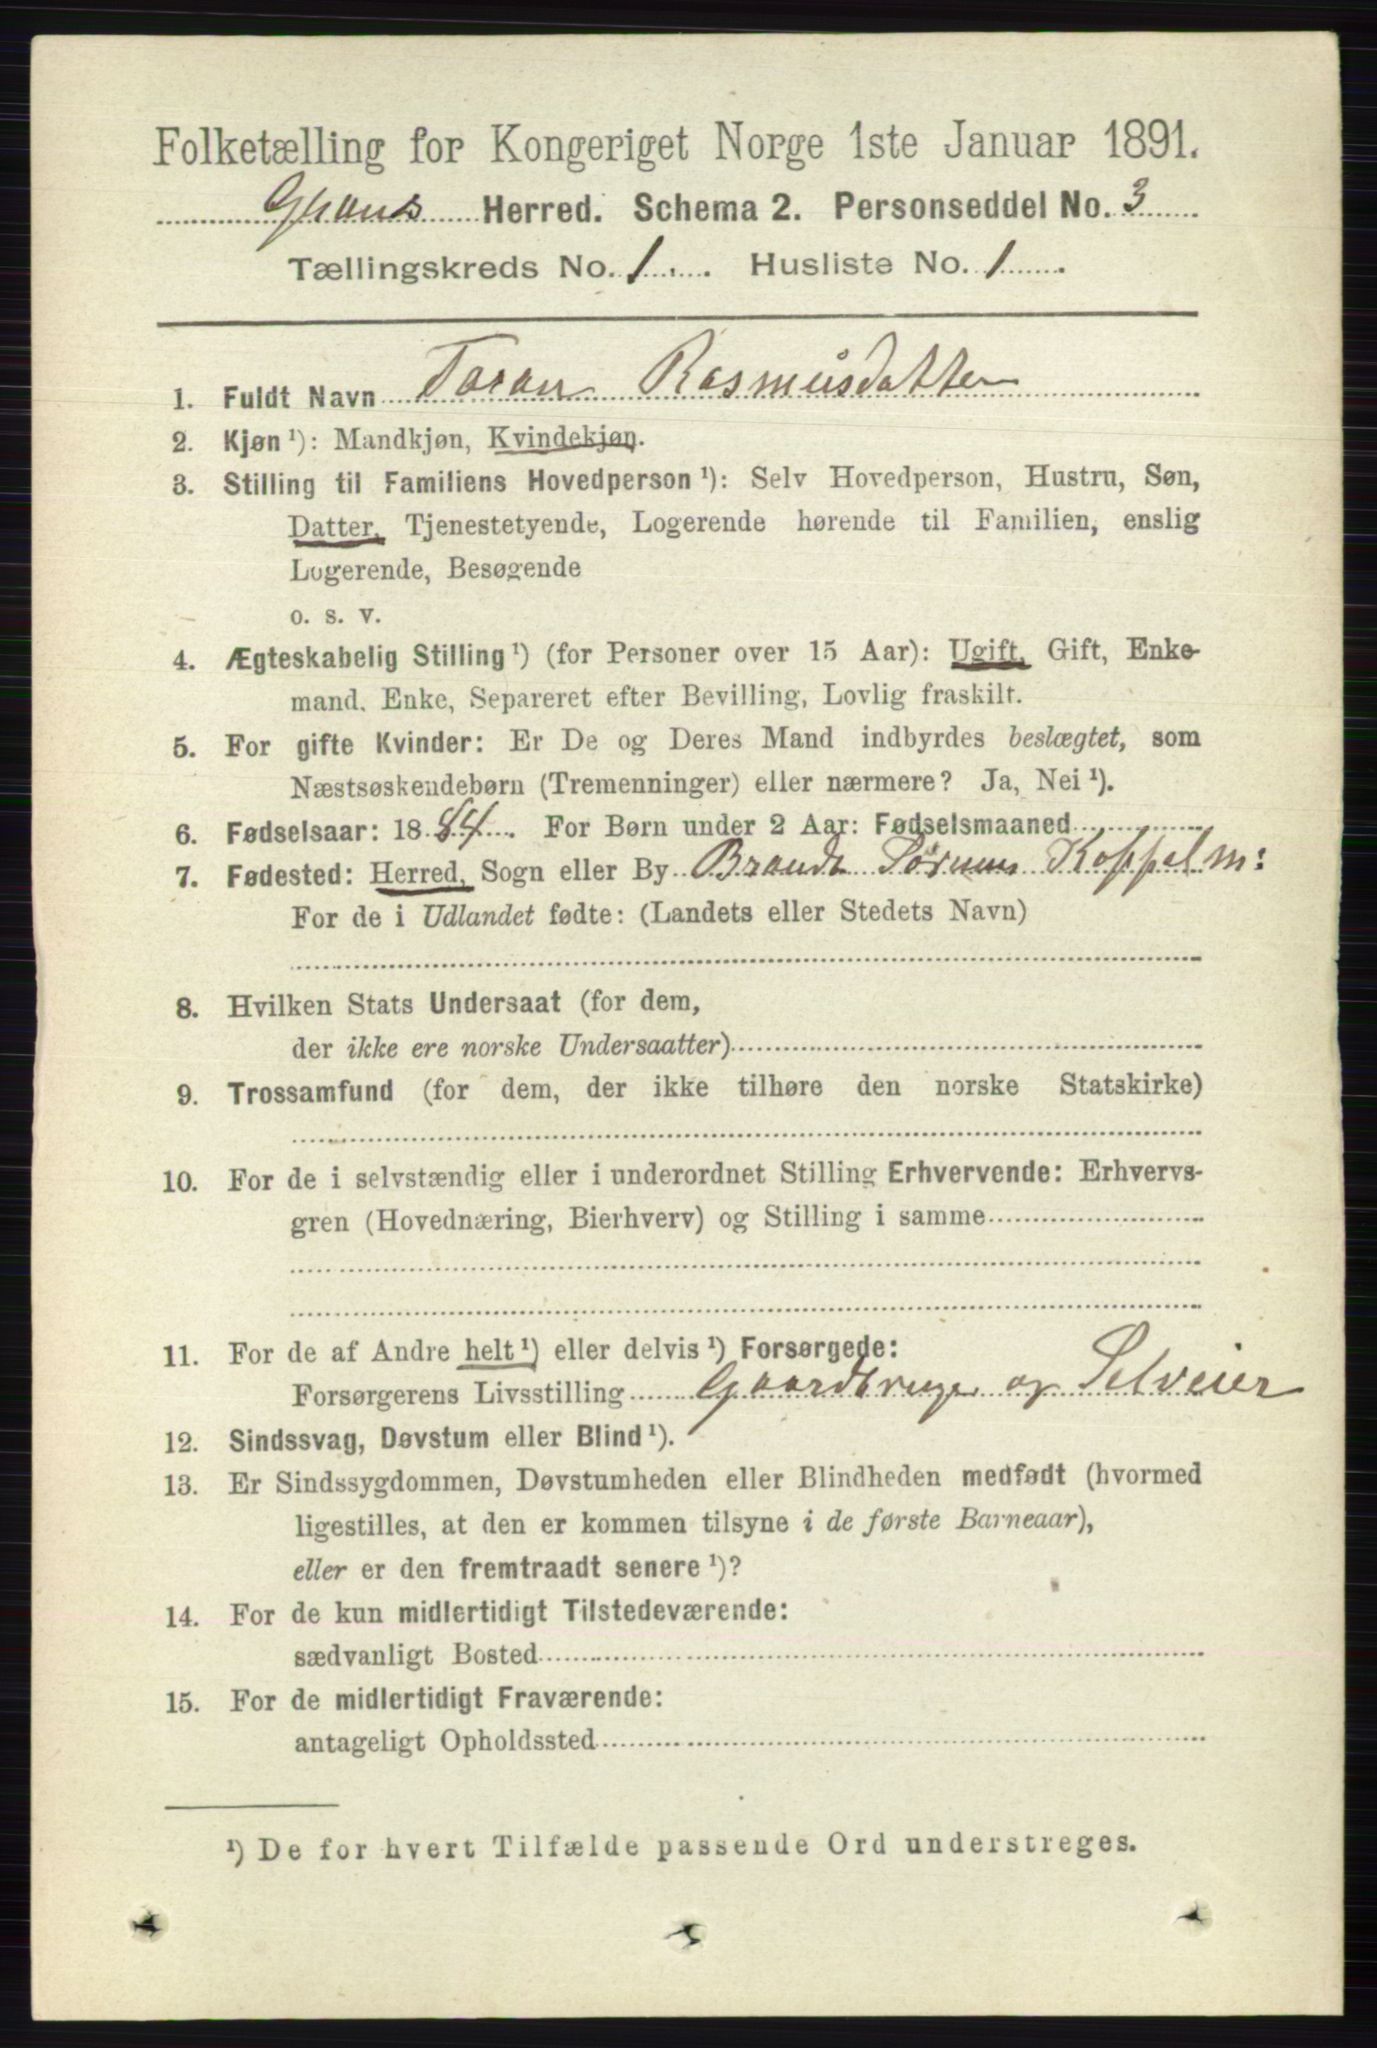 Folketælling for Kongeriget Norge 1ste Januar 1891.
Grans Herred. Schema 2. Personseddel No. 3
Tællingskreds No. 1. Husliste No. 1
1. Fuldt Navn Toran Rasmusdatter
2. Kjøn ¹): Mandkjøn, Kvindekjøn.
3. Stilling til Familiens Hovedperson ¹): Selv Hovedperson, Hustru, Søn,
Datter, Tjenestetyende, Logerende hørende til Familien, enslig
Logerende, Besøgende
o. s. v.
4. Ægteskabelig Stilling ¹) (for Personer over 15 Aar): Ugift, Gift, Enke-
mand, Enke, Separeret efter Bevilling, Lovlig fraskilt.
5. For gifte Kvinder: Er De og Deres Mand indbyrdes beslægtet, som
Næstsøskendebørn (Tremenninger) eller nærmere? Ja, Nei ¹).
6. Fødselsaar: 1884. For Børn under 2 Aar: Fødselsmaaned
7. Fødested: Herred, Sogn eller By Brandt
For de i Udlandet fødte: (Landets eller Stedets Navn)
8. Hvilken Stats Undersaat (for dem,
der ikke ere norske Undersaatter)
9. Trossamfund (for dem, der ikke tilhøre den norske Statskirke)
10. For de i selvstændig eller i underordnet Stilling Erhvervende: Erhvervs-
gren (Hovednæring, Bierhverv) og Stilling i samme
11. For de af Andre helt ¹) eller delvis ¹) Forsørgede:
Forsørgerens Livsstilling Gaardbruger og Selveier
12. Sindssvag, Døvstum eller Blind ¹).
13. Er Sindssygdommen, Døvstumheden eller Blindheden medfødt (hvormed
ligestilles, at den er kommen tilsyne i de første Barneaar),
eller er den fremtraadt senere ¹)?
14. For de kun midlertidigt Tilstedeværende:
sædvanligt Bosted
15. For de midlertidigt Fraværende:
antageligt Opholdssted
¹) De for hvert Tilfælde passende Ord understreges.